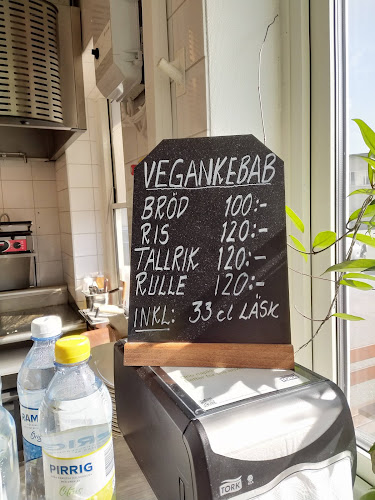 VEGANKEBAB
BRÖD 100:-
RIS 120:-
TALLRIK 120:-
RULLE 120:-
INKL: 33 cl LÄSK
PIRRIG
Citron
TORK